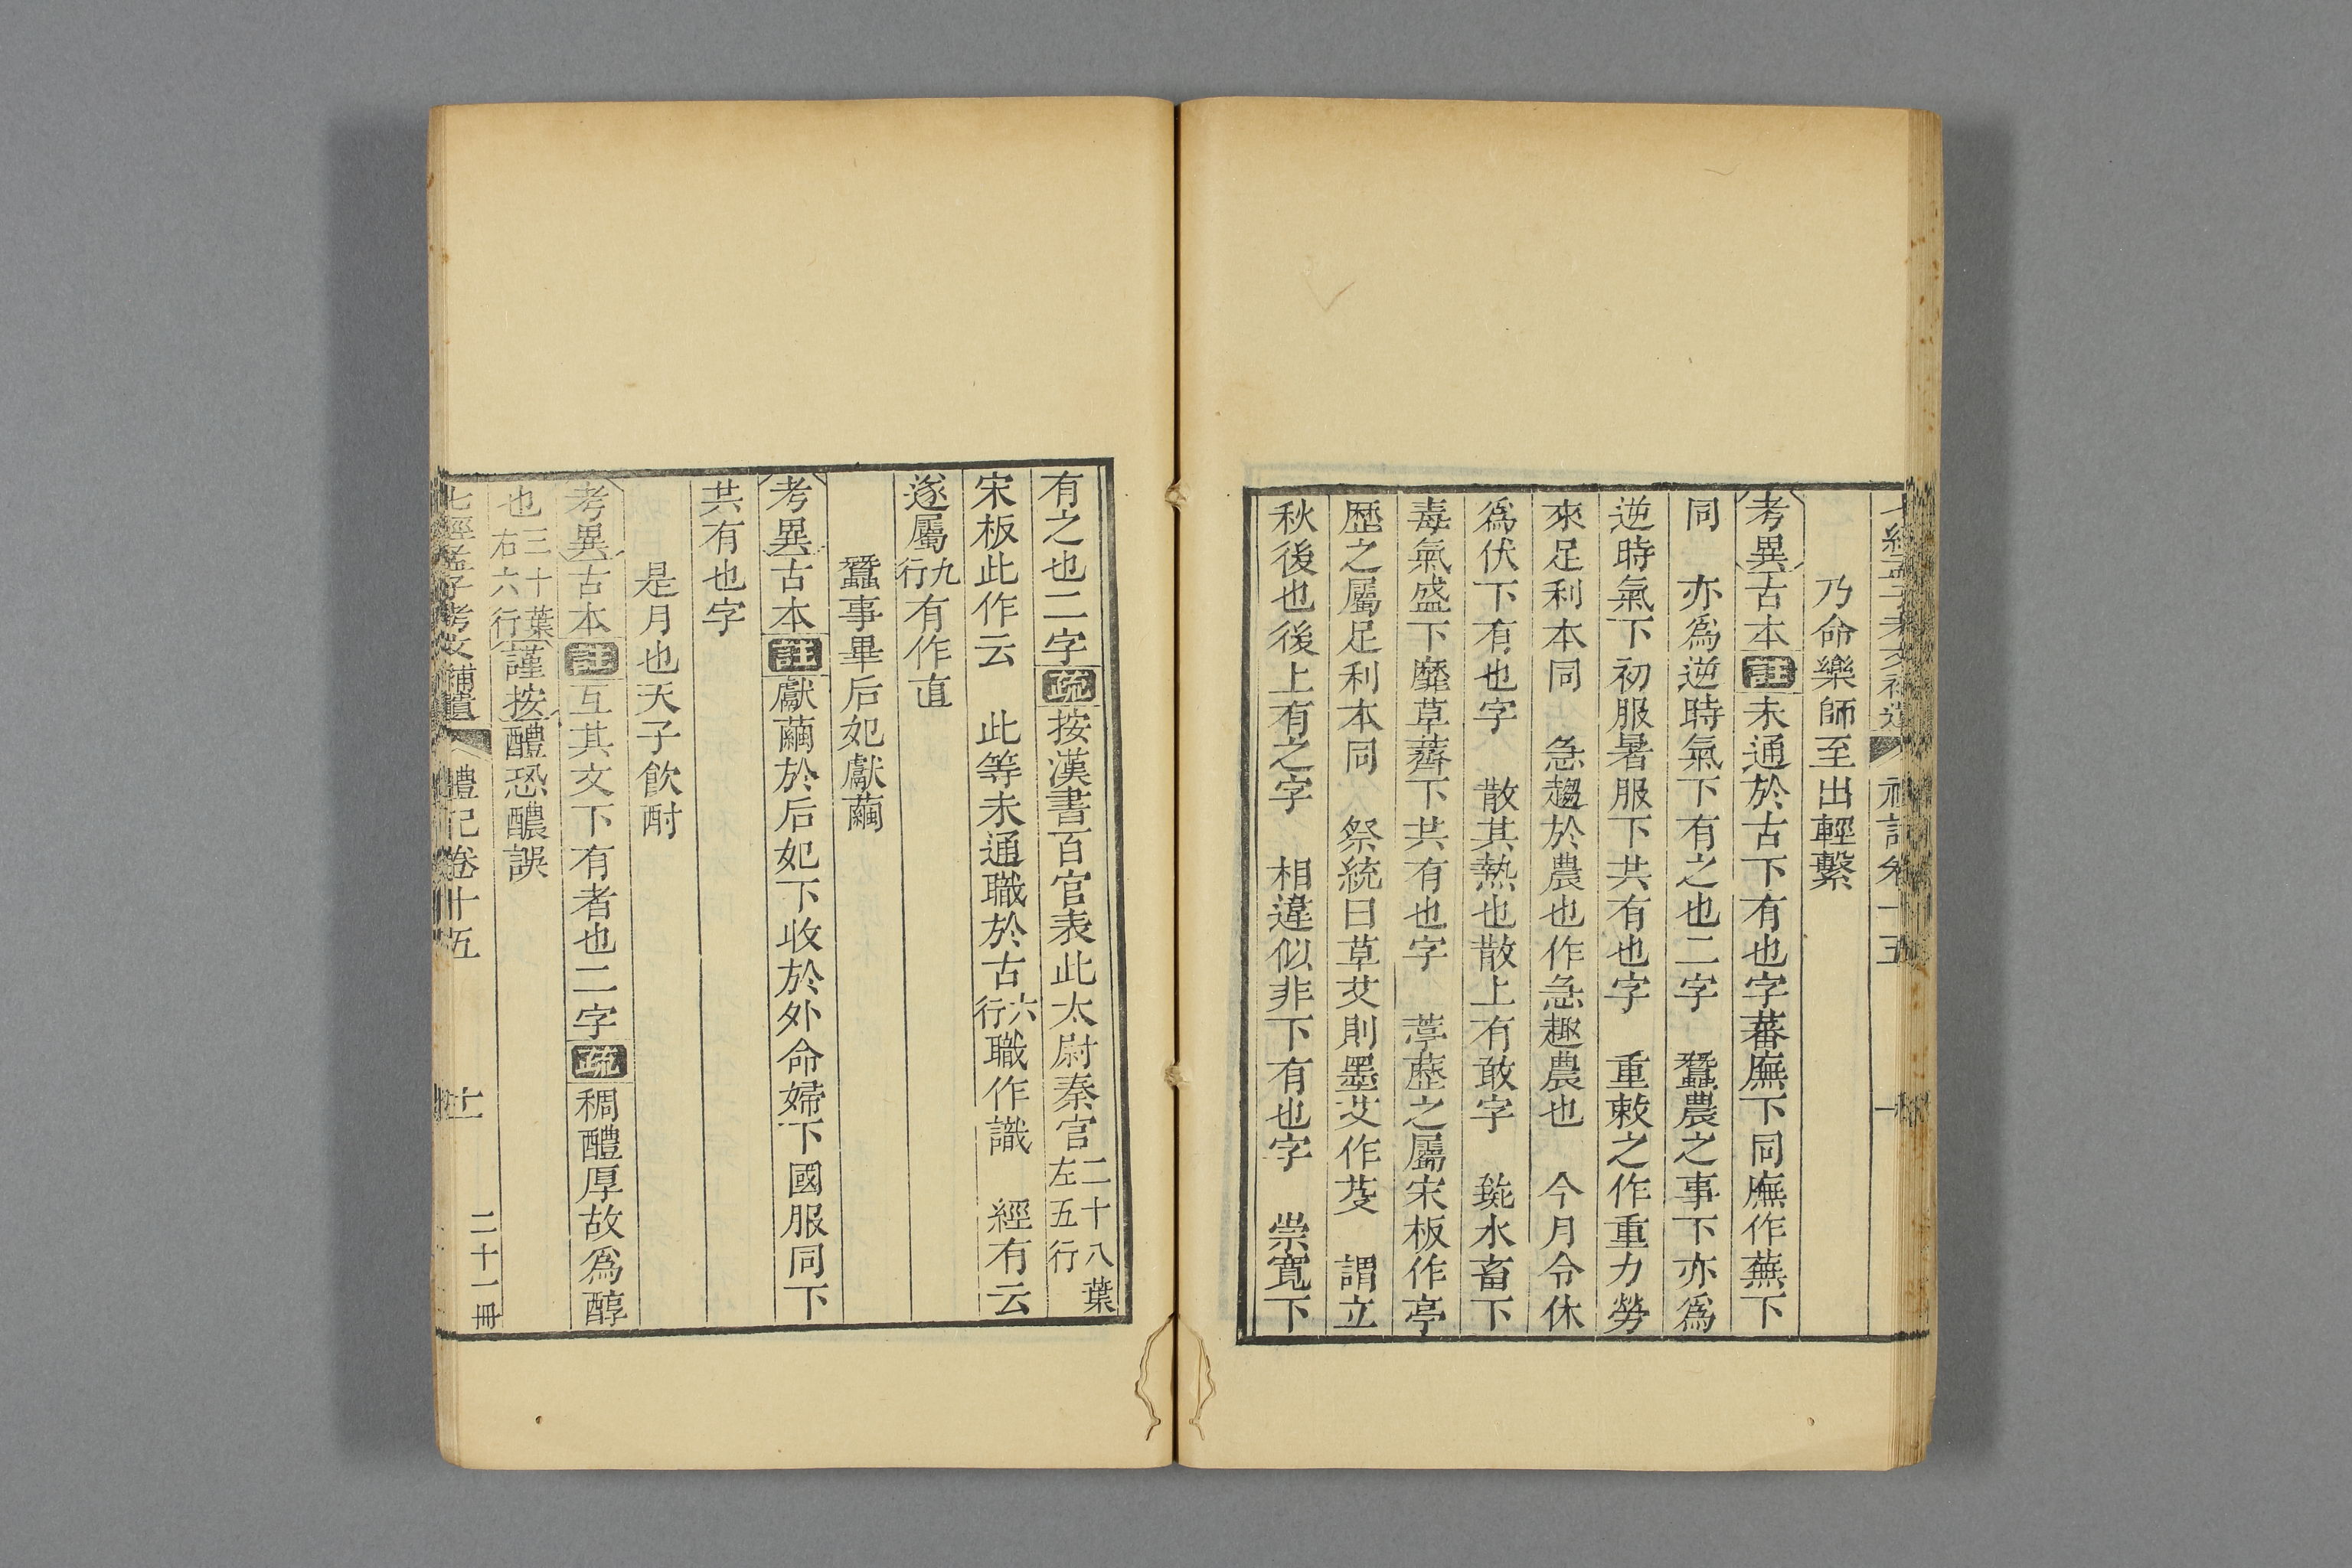 乃命樂師至出輕繫
考異古本註未通於古下有也字蕃廡下同廡作蕪下
同　亦爲逆時氣下有之也二字　蠶農之事下亦爲
逆時氣下初服暑服下共有也字　重敕之作重力勞
來足利本同　急趨於農也作急趣農也　今月令休
爲伏下有也字　散其熱也散上有敢字　毓水畜下
毒氣盛下靡草薺下共有也字　葶藶之屬宋板作亭
歷之屬足利本同　祭統曰草艾則墨艾作芟　謂立
秋後也後上有之字　相違似非下有也字　崇寬下
有之也二字疏按漢書百官表此太尉秦官二十八葉左五行
宋板此作云　此等未通職於古六行職作識　經有云
遂屬九行有作直
蠶事畢后妃獻繭
考異古本註獻繭於后妃下收於外命婦下國服同下
共有也字
是月也天子飲酎
考異古本註互其文下有者也二字疏稠醴厚故爲醇
也三十葉右六行謹按醴恐醲誤
七經孟子考文補遺　禮記卷十五　二十一冊